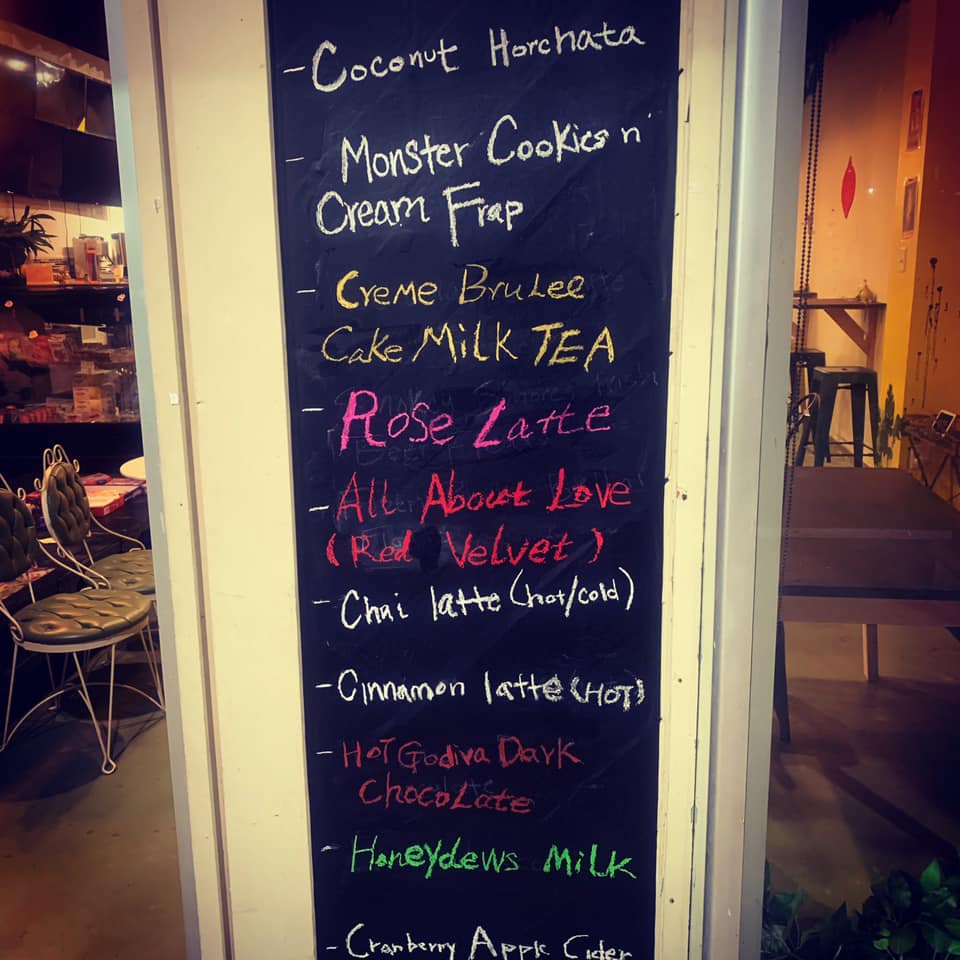 - Coconut Horchata
- Monster Cookies n'
Cream Frap
- Creme Brulee
Cake Milk TEA
- Rose Latte
- All About Love
(Red Velvet)
- Chai latte (hot/cold)
- Cinnamon latte (HOT)
- HOT Godiva Dark
Chocolate
- Honeydews Milk
- Cranberry Apple Cider